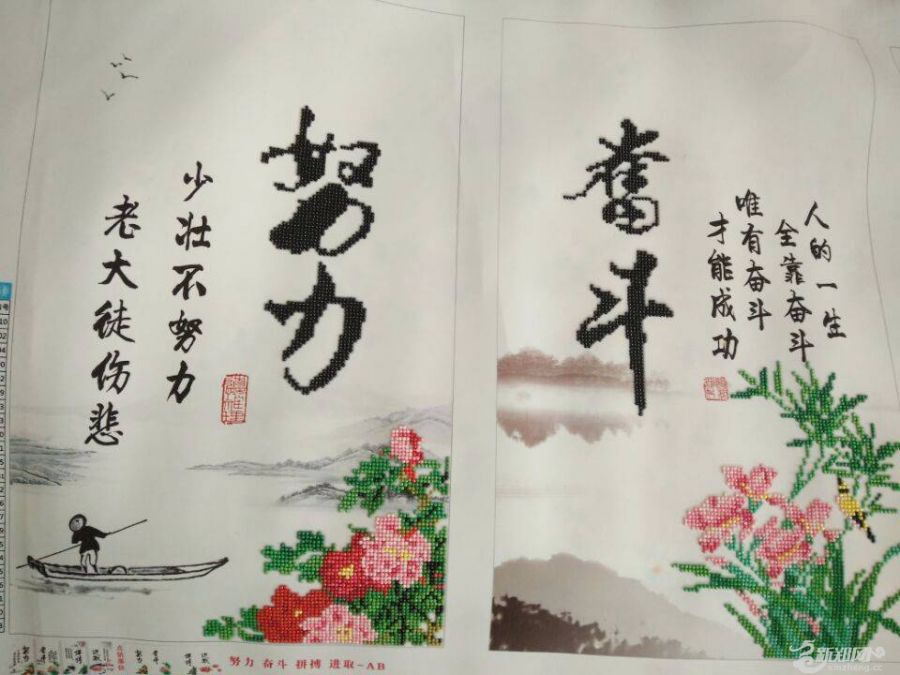 努力
少壮不努力
老大徒伤悲
奋斗
人的一生
全靠奋斗
唯有奋斗
才能成功
努力 奋斗 拼搏 进取~AB
新郑网
xinzheng.cc